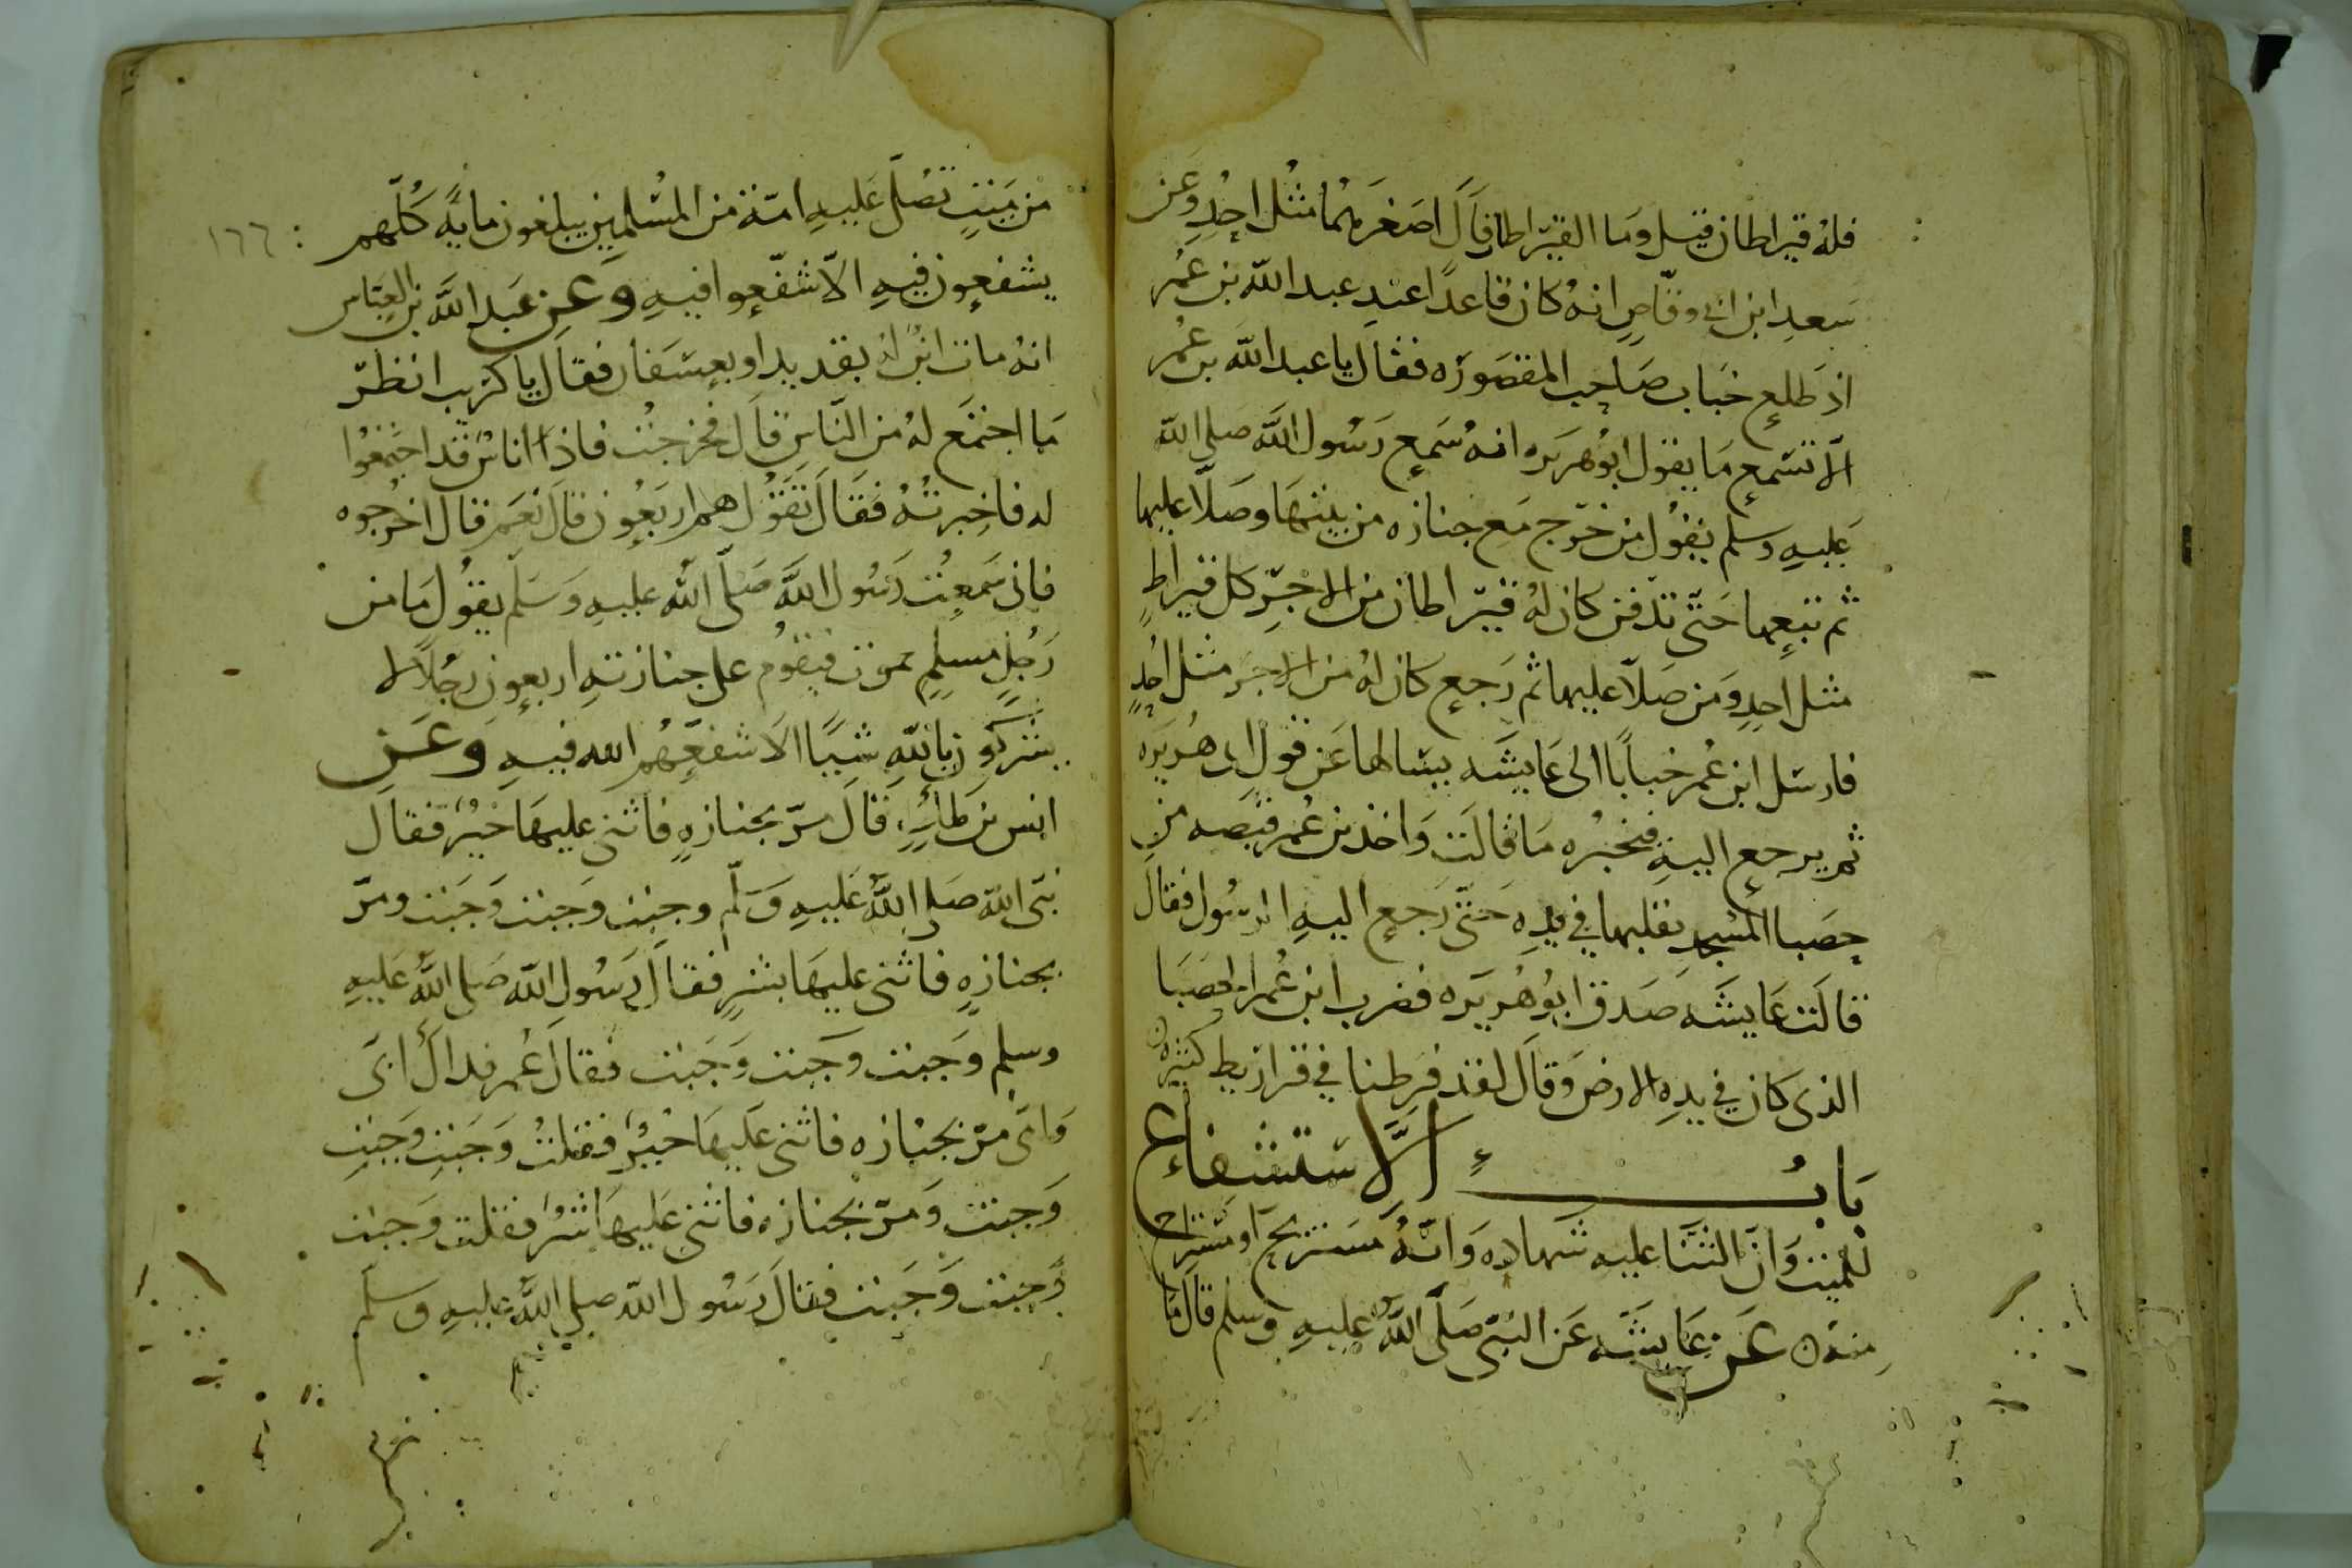 فله قيراطان قيل وما القيراطان قال اصغرهما مثل احد وعن
سعد ابن ابى وقاص انه كان قاعدا عند عبد الله بن عمر
اذ طلع خباب صاحب المقصوره فقال يا عبد الله بن عمر
الا تسمع ما يقول ابو هريره انه سمع رسول الله صلى الله
عليه وسلم يقول من خرج مع جنازه من بيتها وصلا عليها
ثم تبعها حتى تدفن كان له قيراطان من الاجر كل قيراط
مثل احد ومن صلا عليها ثم رجع كان له من الاجر مثل احد
فارسل ابن عمر خبابا الى عايشه يسالها عن قول ابى هريره
ثم يرجع اليه فيخبره ما قالت واخذ بن عمر قبصه من
حصبا المسجد يقلبها في يده حتى رجع اليه الرسول فقال
قالت عايشه صدق ابو هريره فضرب ابن عمر الحصبا
الذى كان في يده الارض وقال لقد فرطنا في قراريط كثيره
باب الاستشفاع
للميت وان الثنا عليه شهاده وانه مستريح او مستراح
منه عن عايشه عن النبى صلى الله عليه وسلم قال ما
من ميت تصلى عليه امة من المسلمين يبلغون مايه كلهم
١٦٦
يشفعون فيه الا شفعوا فيه وعن عبد الله بن العباس
انه مات ابن له بقديد او بعسفان فقال يا كريب انظر
ما اجتمع له من الناس قال فخرجت فاذا اناس قد اجتمعوا
له فاخبرته فقال تقول هم اربعون قال نعم قال اخرجوه
فانى سمعت رسول الله صلى الله عليه وسلم يقول ما من
رجل مسلم يموت فيقوم على جنازته اربعون رجلا لا
يشركون بالله شيا الا شفعهم الله فيه وعن
انس بن مالك قال مر بجنازه فاثنى عليها خير فقال
نبى الله صلى الله عليه وسلم وجبت وجبت وجبت ومر
بجنازه فاثنى عليها بشر فقال رسول الله صلى الله عليه
وسلم وجبت وجبت وجبت فقال عمر فداك ابى
وامى مر بجنازه فاثنى عليها خير فقلت وجبت وجبت
وجبت ومر بجنازه فاثنى عليها شر فقلت وجبت
وجبت وجبت فقال رسول الله صلى الله عليه وسلم